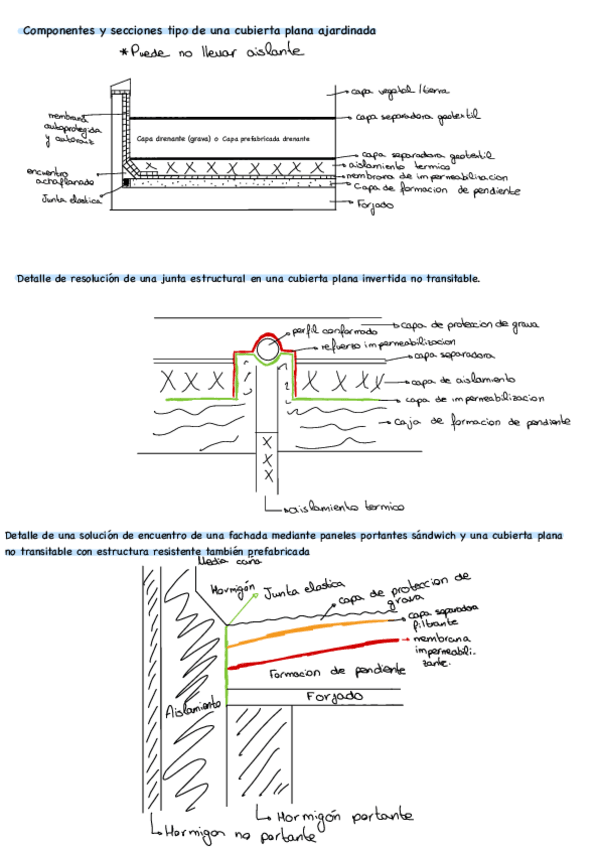 Componentes y secciones tipo de una cubierta plana ajardinada
*Puede no llevar aislante
capa vegetal / tierra
membrana
autoprotegida
y autoraiz
capa separadora geotextil
Capa drenante (grava) o Capa prefabricada drenante
capa separadora geotextil
aislamiento termico
encuentro
achaflanado
membrana de impermeabilizacion
Capa de formacion de pendiente
Junta elastica
Forjado
Detalle de resolución de una junta estructural en una cubierta plana invertida no transitable.
perfil conformado
capa de proteccion de grava
refuerzo impermeabilizacion
capa separadora
capa de aislamiento
capa de impermeabilizacion
Caja de formacion de pendiente
aislamiento termico
Detalle de una solución de encuentro de una fachada mediante paneles portantes sándwich y una cubierta plana
no transitable con estructura resistente también prefabricada
Media caña
Hormigón
Junta elastica
capa de proteccion de
grava
capa separadora
filtrante
membrana
impermeabili-
zante.
Formacion de pendiente
Forjado
Aislamiento
Hormigón portante
Hormigon no portante